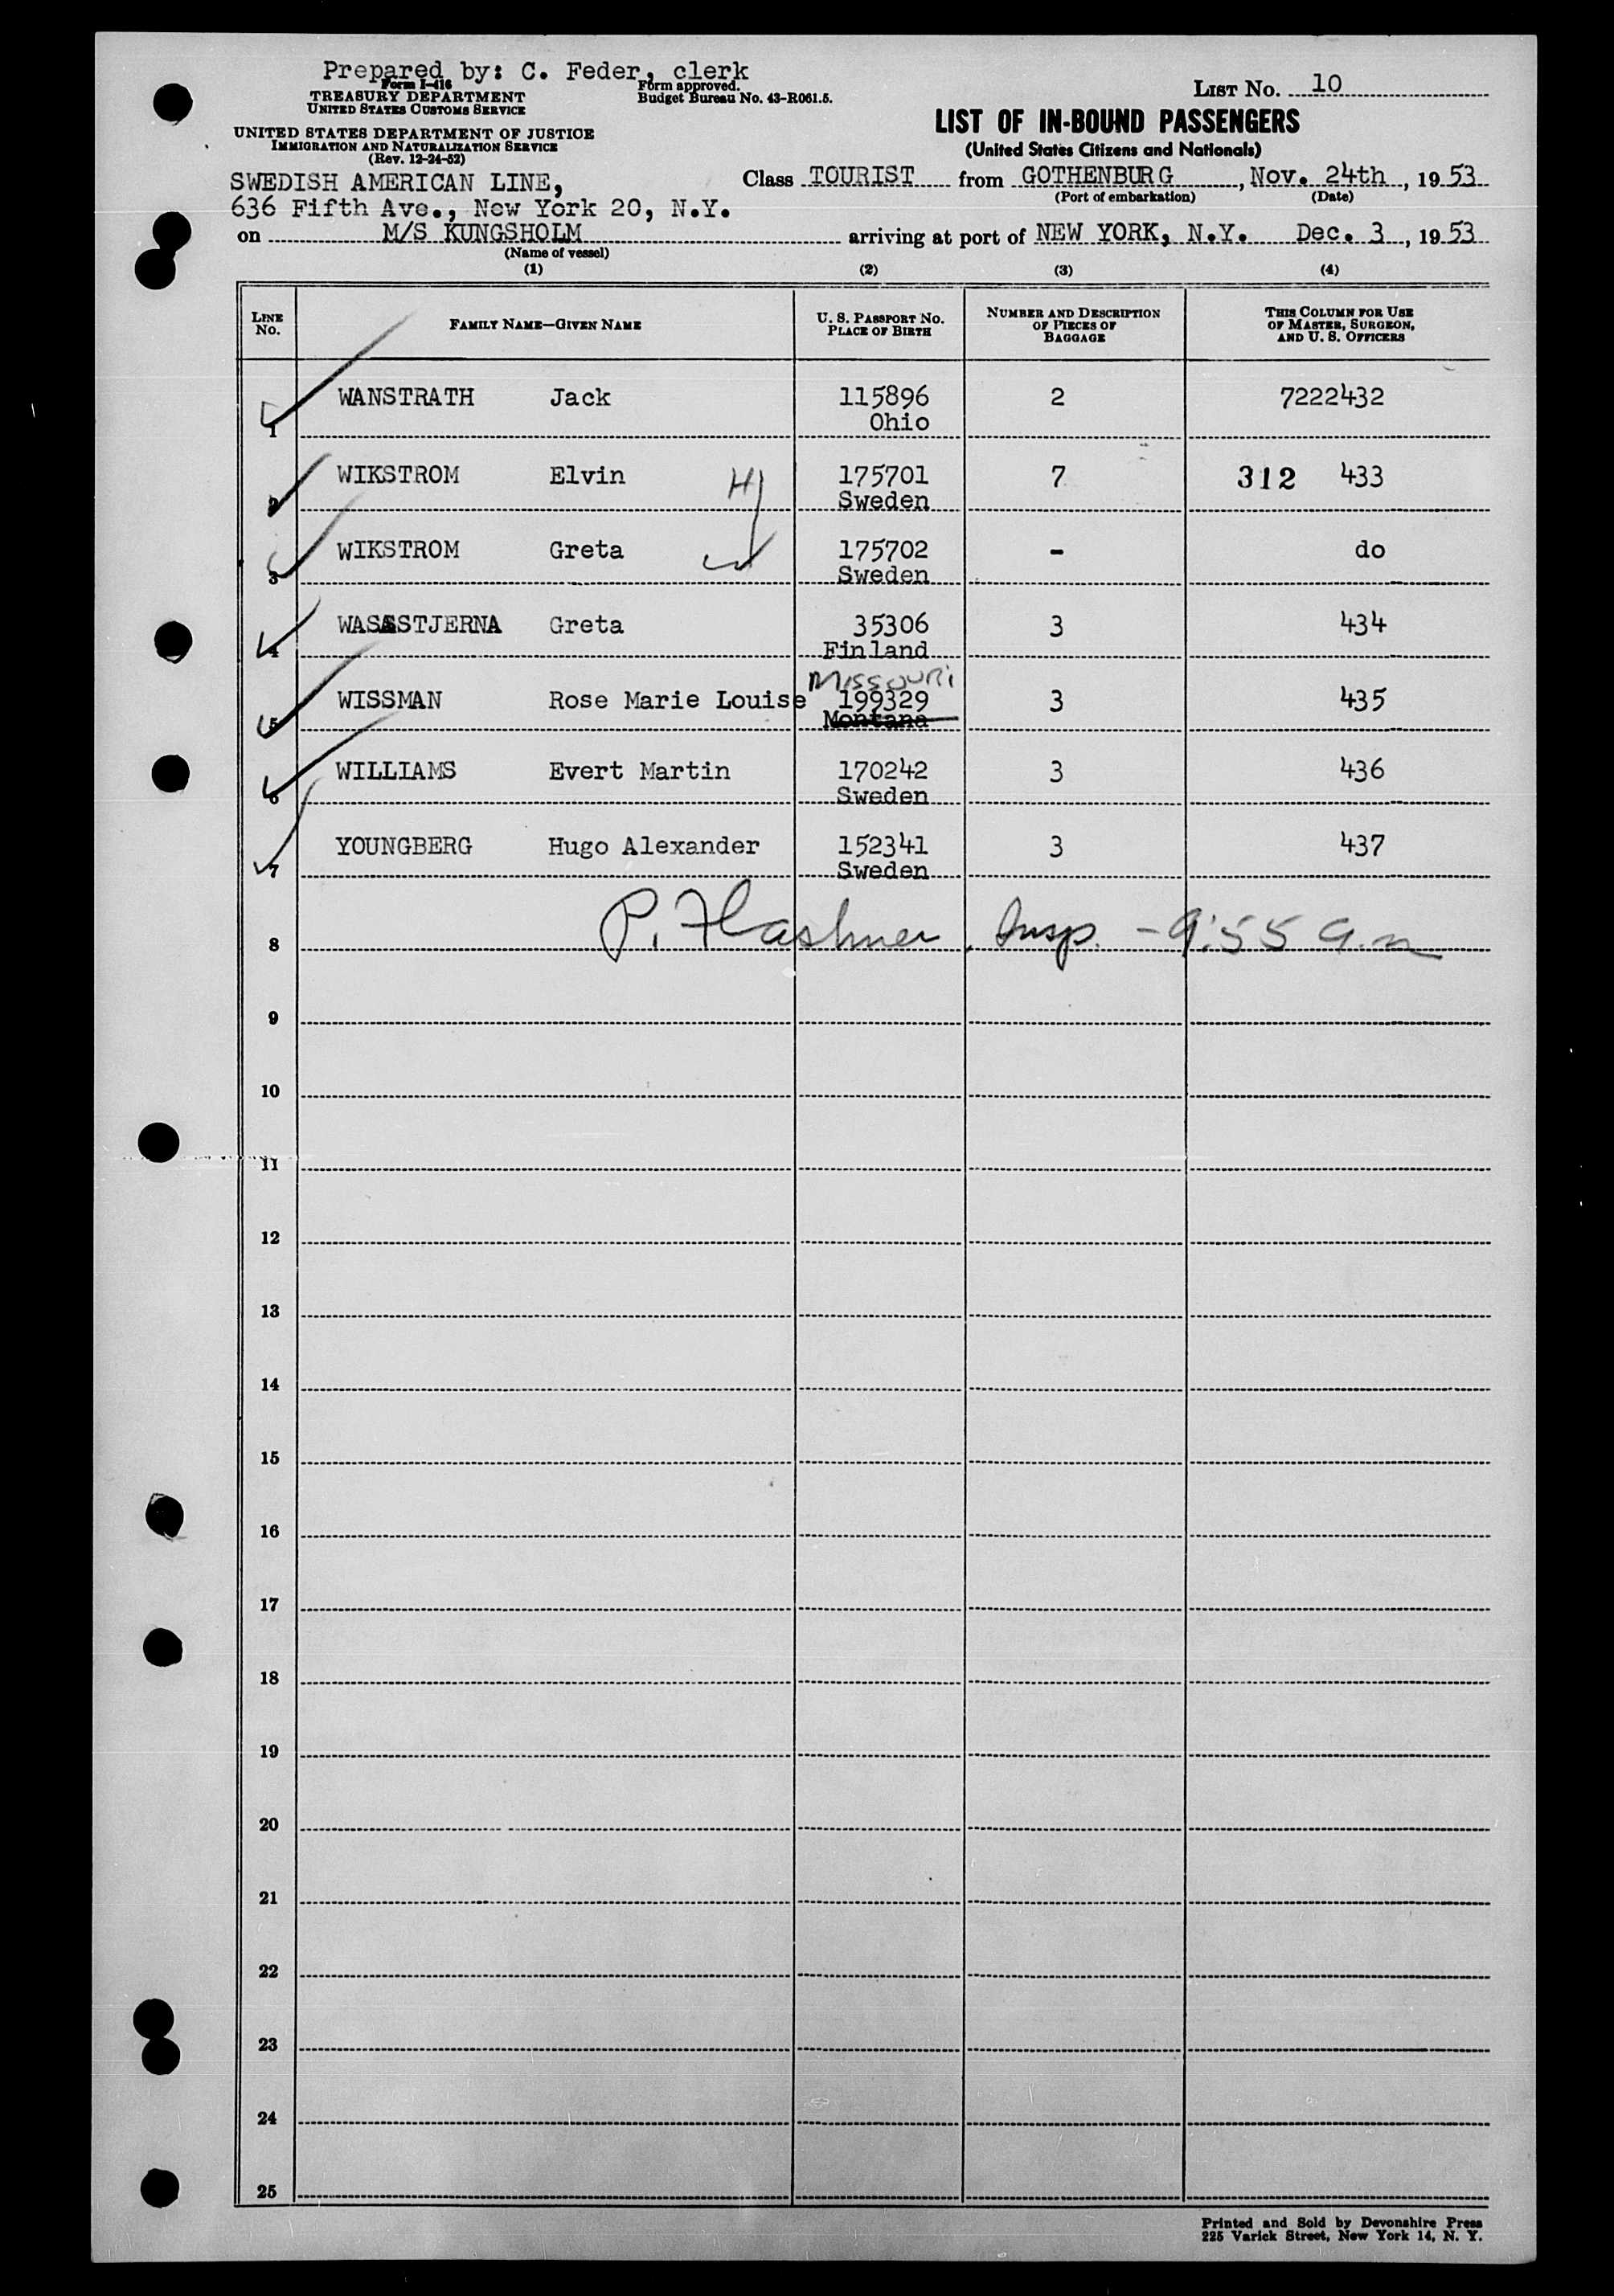 Prepared by: C. Feder, clerk
Form I-416
TREASURY DEPARTMENT
UNITED STATES CUSTOMS SERVICE
Form approved.
Budget Bureau No. 43-R061.5.
LIST NO. 10
UNITED STATES DEPARTMENT OF JUSTICE
IMMIGRATION AND NATURALIZATION SERVICE
(Rev. 12-24-52)
LIST OF IN-BOUND PASSENGERS
(United States Citizens and Nationals)
SWEDISH AMERICAN LINE,
636 Fifth Ave., New York 20, N.Y.
Class TOURIST from GOTHENBURG, Nov. 24th, 1953
(Port of embarkation) (Date)
on M/S KUNGSHOLM arriving at port of NEW YORK, N.Y. Dec. 3, 1953
(Name of vessel)
(1) (2) (3) (4)
LINE NO. FAMILY NAME—GIVEN NAME U. S. PASSPORT NO. PLACE OF BIRTH NUMBER AND DESCRIPTION OF PIECES OF BAGGAGE THIS COLUMN FOR USE OF MASTER, SURGEON, AND U. S. OFFICERS
WANSTRATH Jack 115896 2 7222432
1 Ohio
WIKSTROM Elvin H 175701 7 312 433
2 Sweden
WIKSTROM Greta W 175702 - do
3 Sweden
WASASTJERNA Greta 35306 3 434
4 Finland
Missouri
WISSMAN Rose Marie Louise 199329 3 435
5 Montana
WILLIAMS Evert Martin 170242 3 436
6 Sweden
YOUNGBERG Hugo Alexander 152341 3 437
7 Sweden
8 P. Flashner, Insp. - 9:55 a.m
9
10
11
12
13
14
15
16
17
18
19
20
21
22
23
24
25
Printed and Sold by Devonshire Press
225 Varick Street, New York 14, N. Y.